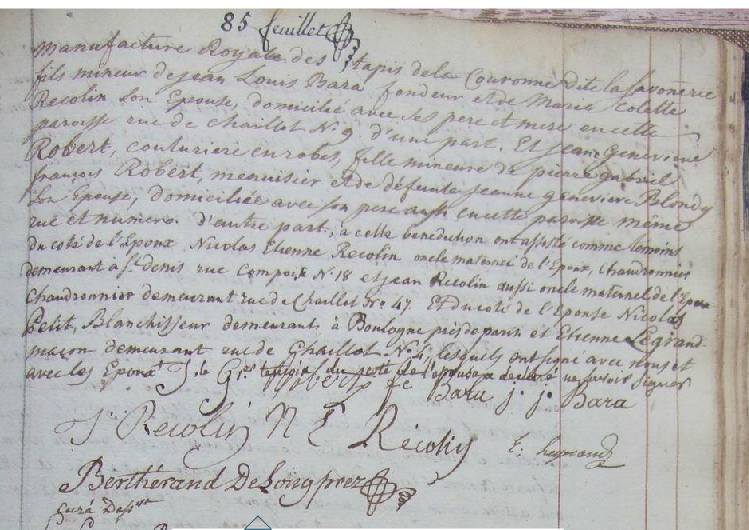 85 feuillet
manufacture Royale des tapis de la Couronne dite la Savonerie
fils mineur de jean Louis Bara fondeur et de Marie Colette
Recolin Son Epouse, domicilié avec ses pere et mere en cette
paroisse rue de chaillot N. 9 d'une part. Et Jeanne Genevieve
Robert, couturiere en robes, fille mineure de pierre gabriel
françois Robert, menuisier et de défunte Jeanne genevieve Blondy
Son Epouse, domiciliée avec son pere aussi en cette paroisse même
rue et numero. d'autre part, a cette benediction ont assisté comme temoins
du coté de l'Epoux, Nicolas Etienne Recolin oncle maternel de l'Epoux, Chaudronnier
demeurant à St. denis rue Compoix N. 18 et jean Recolin aussi oncle maternel de l'Epoux
Chaudronnier demeurant rue de Chaillot No 47 Et du coté de l'Epouse Nicolas
Petit, Blanchisseur demeurant à Boulogne près de paris et Etienne Legrand
maçon demeurant rue de Chaillot N. 4, lesquels ont signé avec nous et
avec les Epoux
declaré ne savoir signer
Robert Bara j. j. Bara
J Recolin N E Récolin
E. Legrand
Berthérand De Longprez